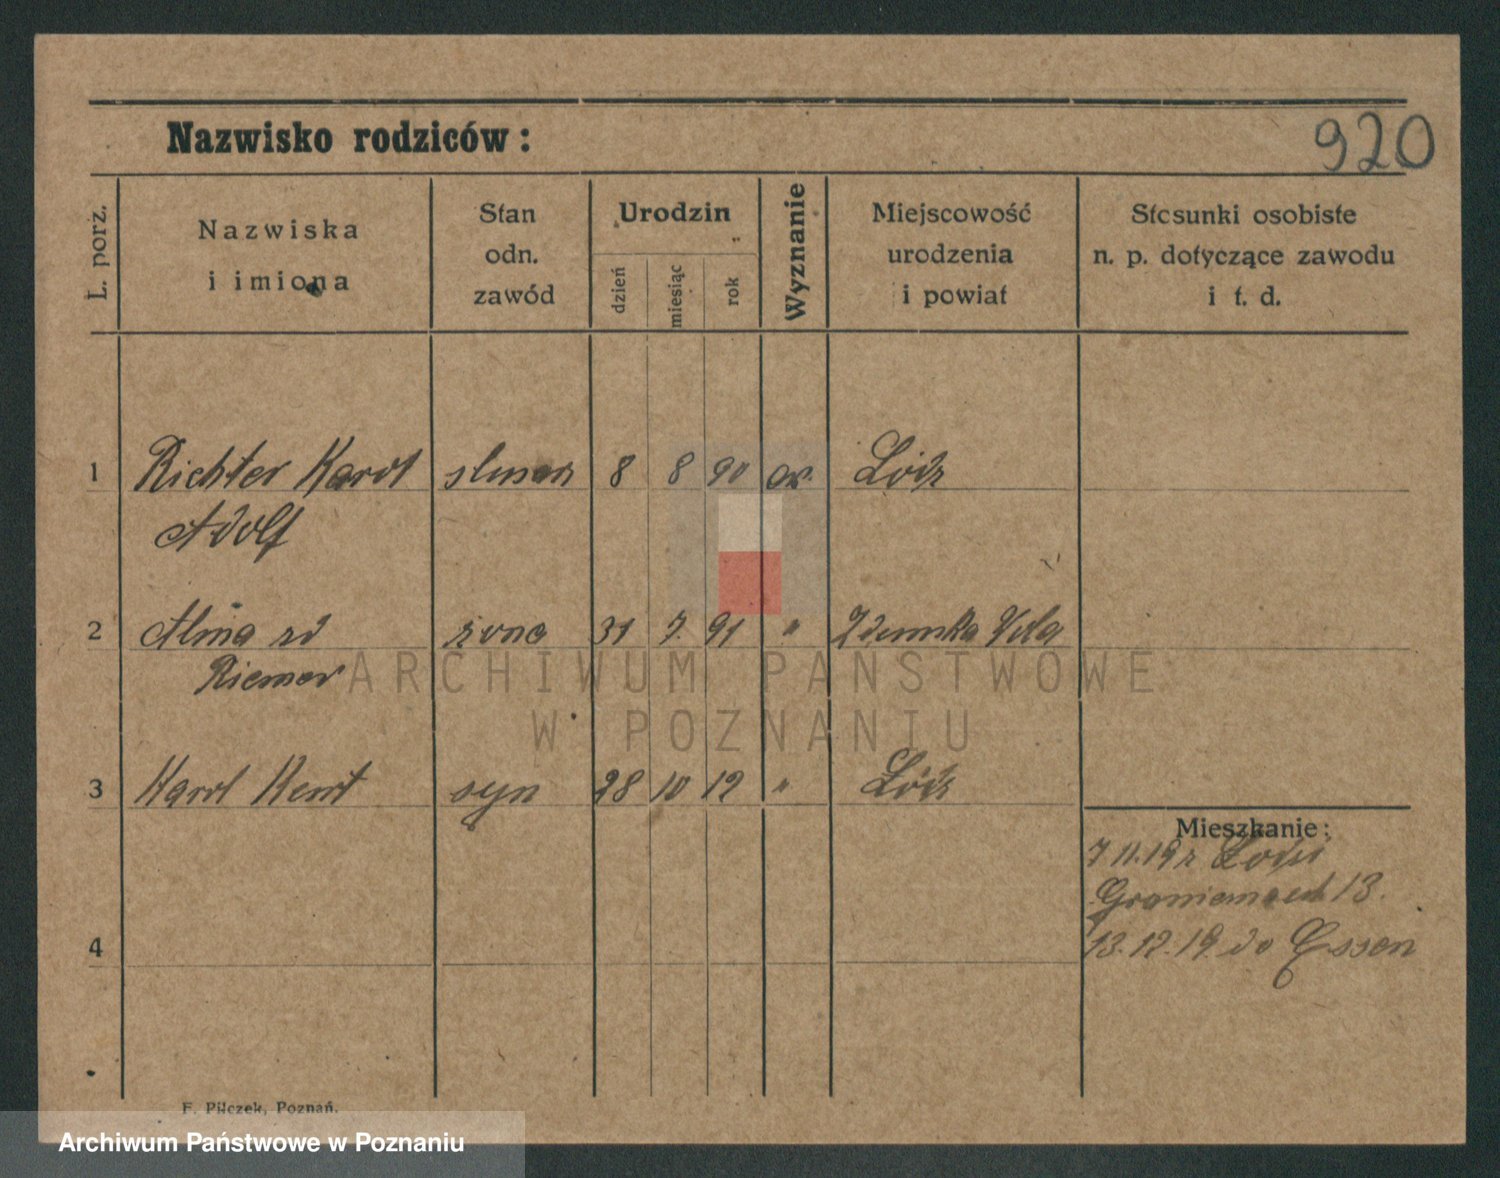 920
Nazwisko rodziców:
L. porz.
Nazwiska
i imiona
Stan
odn.
zawód
Urodzin
dzień
miesiąc
rok
Wyznanie
Miejscowość
urodzenia
i powiat
Stosunki osobiste
n. p. dotyczące zawodu
i t. d.
1 Richter Karol slusarz 8 8 90 ew. Łódz
Adolf
2 Alma zd zona 31 7. 91 " Zdunska Vola
Riemer
ARCHIWUM PAŃSTWOWE
W POZNANIU
3 Karol syn 28 10 12 " Łódz
Mieszkanie:
7 11.19 z Łodzi
13.
4
13.12.19 do Essen
F. Pilczek, Poznań.
Archiwum Państwowe w Poznaniu